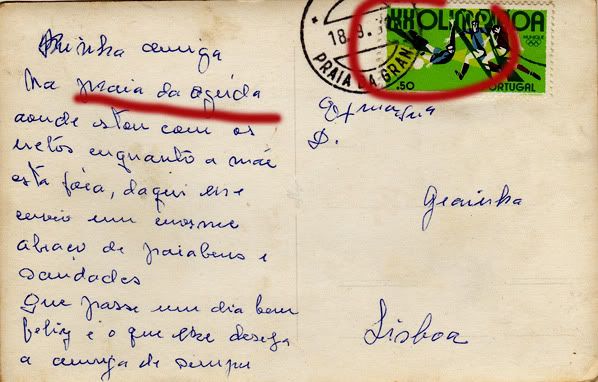 Minha amiga
Na praia da aguda
aonde estou com os
netos enquanto a mãe
está fóra, daqui lhe
envio um enorme
abraço de parabens e
saudades
Que passe um dia bem
feliz é o que lhe deseja
a amiga de sempre
18.9.
PRAIA DA GRAN
XX OLIMPÍADA
MUNIQUE
.50
PORTUGAL
Exma Sra
D.
Lisboa